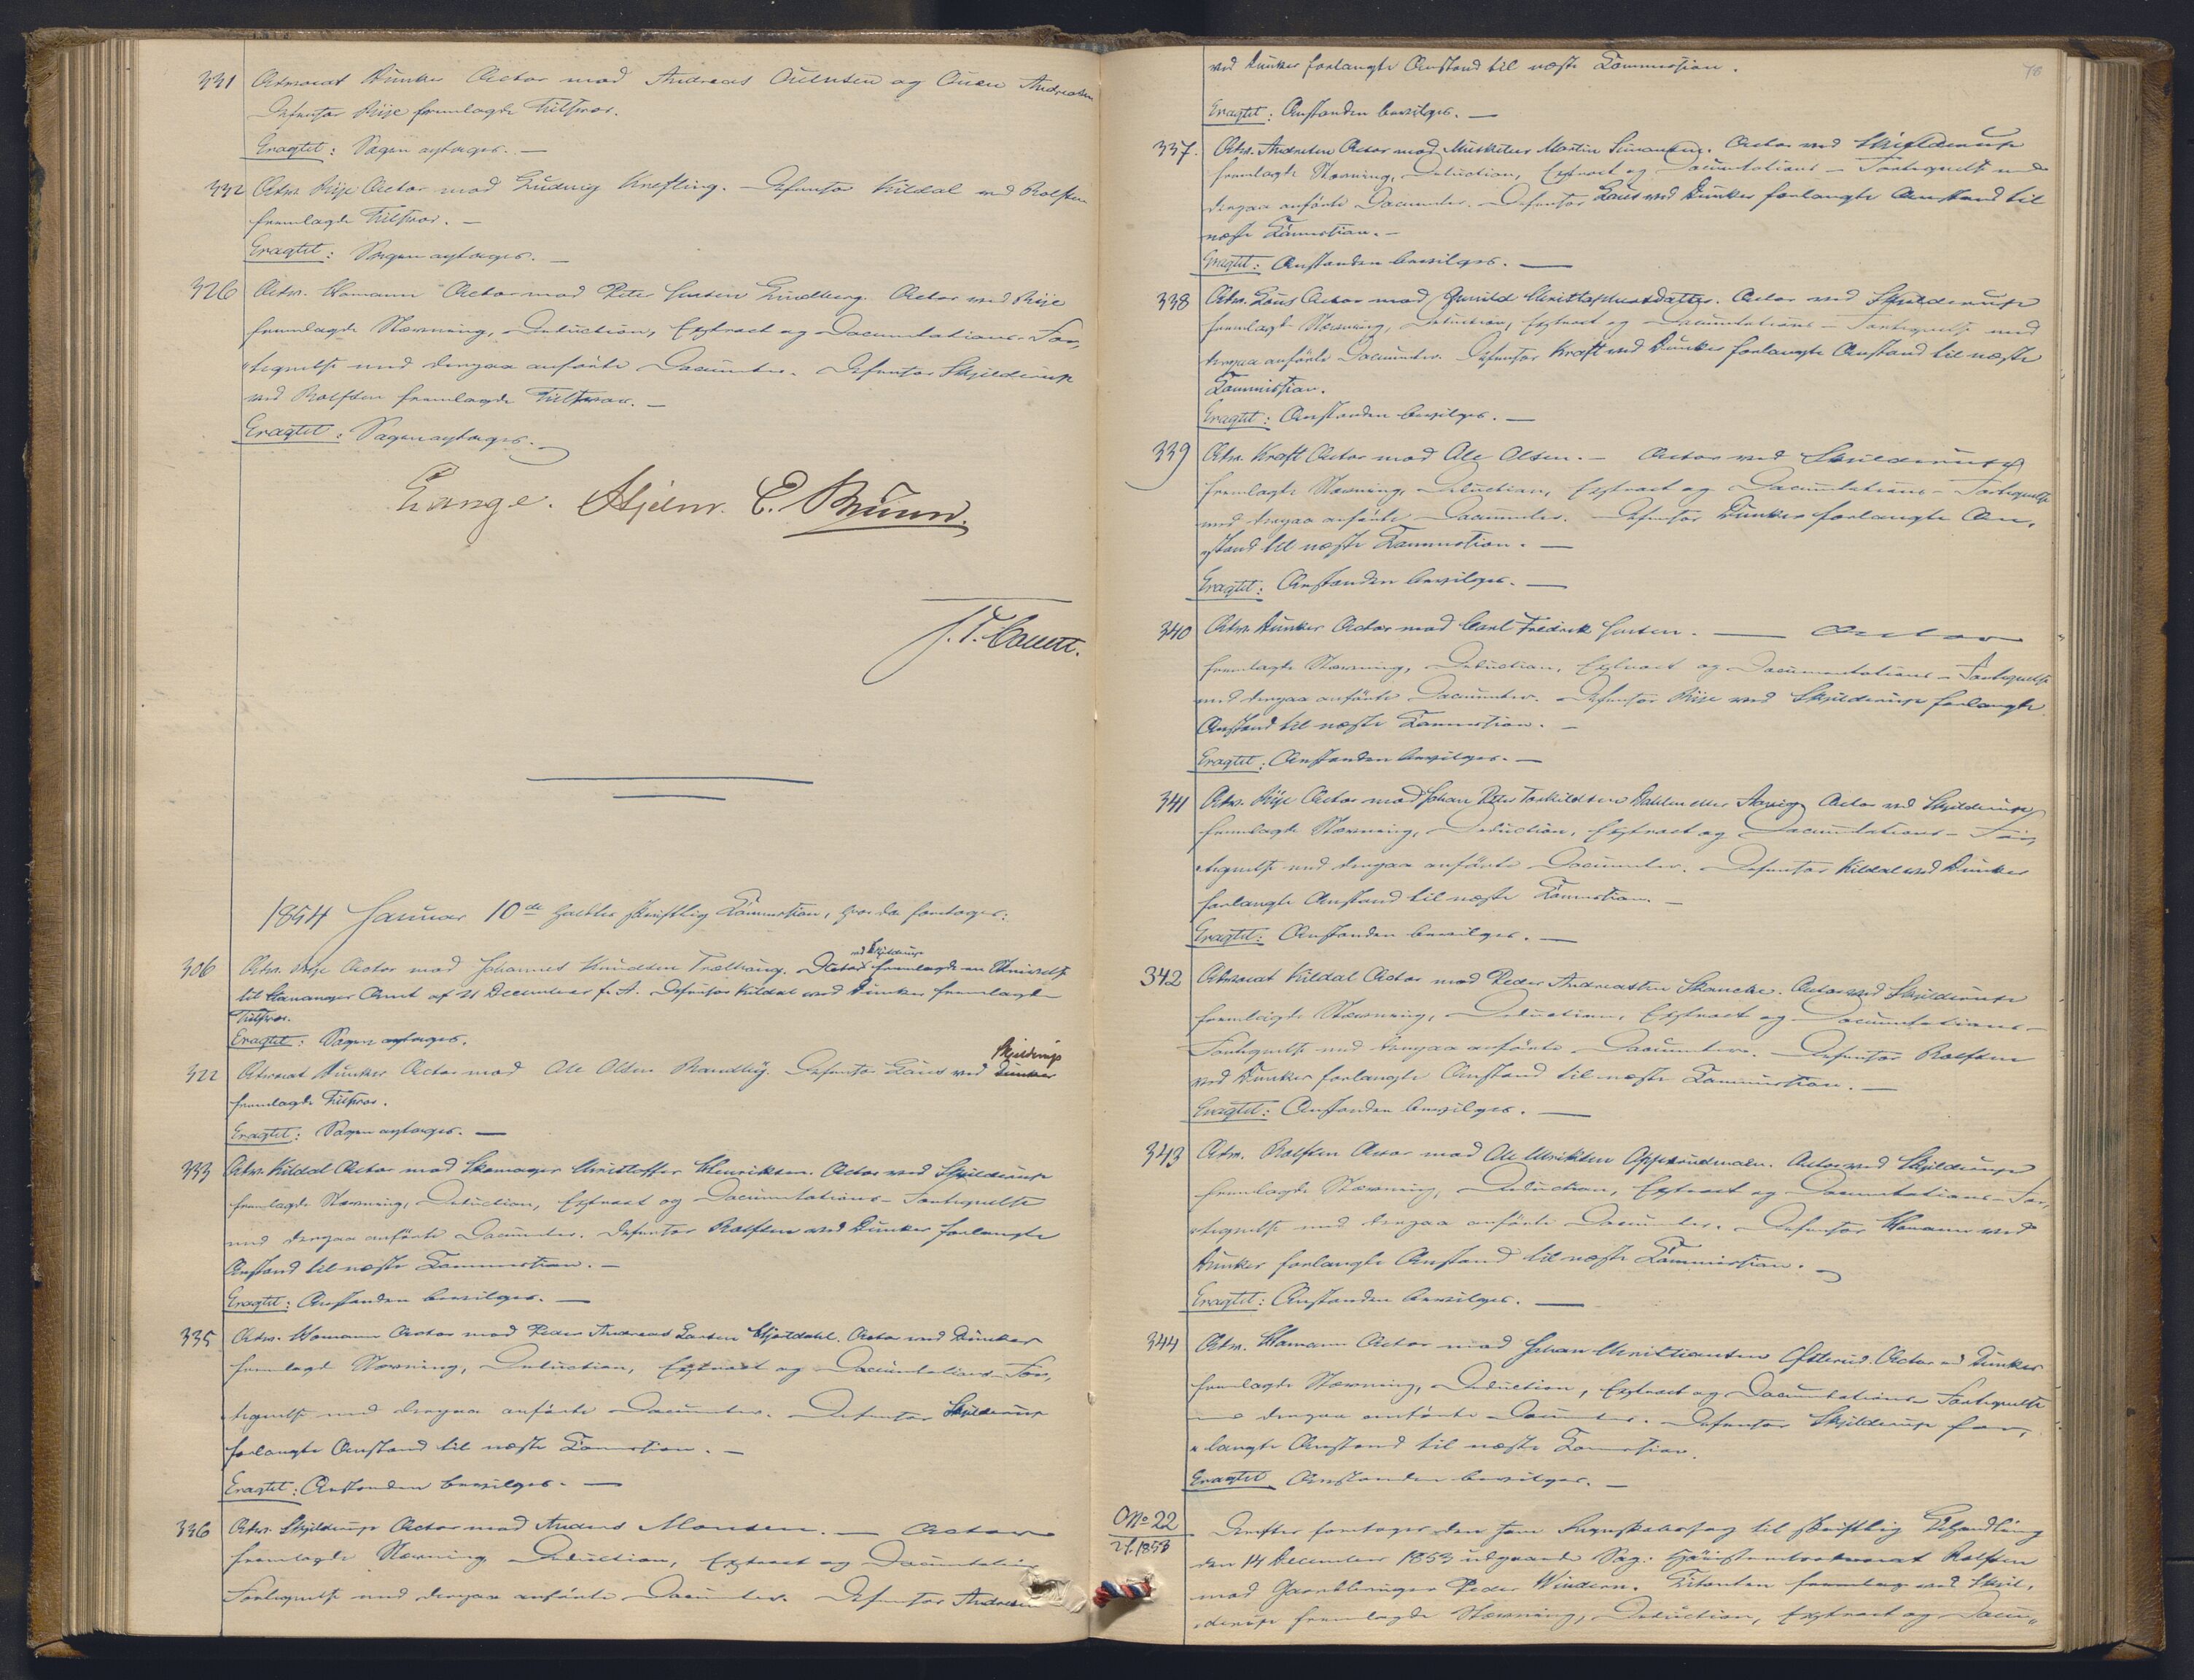 331 Advocat Dunker Actor mod Andreas Aulensen og Andreasen
Defensor Rije fremlagde Tilsvar.
Eragtet: Sagen optages. —
332 Adv. Rije Actor mod Ludvig Knefling. Defensor Kildal ved Rolfsen
fremlagde Tilsvar. —
Eragtet: Sagen optages. —
326 Adv. Homann Actor mod Peter Lindberg. Actor ved Rije
fremlagde Stævning, Deduction, Extract og Documentations-For„
„tegnelse med derpaa anførte Documenter. Defensor Skjelderup
ved Rolfsen fremlagde Tilsvar. —
Eragtet: Sagen optages. —
Lange. Hjelm. C. Bruun.
1854 Januar 10de holdtes skriftlig Session, hvor da foretoges:
306 Adv. Rije Actor mod Johannes Knudsen Trælhaug. Actor ved Skjelderup fremlagde en Skrivelse
til Stavanger Amt af 21 December f. A. Defensor Kildal ved Dunker fremlagde
Tilsvar.
Eragtet: Sagen optages.
322 Advocat Dunker Actor mod Ole Olsen Brandlii. Defensor Laus ved Dunker Skjelderup
fremlagde Tilsvar.
Eragtet: Sagen optages. —
333 Adv. Kildal Actor mod Skomager Christoffer Henriksen. Actor ved Skjelderup
fremlagde Stævning, Deduction, Extract og Documentations-Fortegnelse
med derpaa anførte Documenter. Defensor Rolfsen ved Dunker forlangte
Anstand til næste Session. —
Eragtet: Anstanden bevilges. —
335 Adv. Homann Actor mod Peder Andreas Larsen Hjortdahl. Actor ved Dunker
fremlagde Stævning, Deduction, Extract og Documentations-For„
„tegnelse med derpaa anførte Documenter. Defensor Skjelderup
forlangte Anstand til næste Session. —
Eragtet: Anstanden bevilges. —
336 Adv. Skjelderup Actor mod Anders Monsen. — Actor
fremlagde Stævning, Deduction, Extract og Documentations
Fortegnelse med derpaa anførte Documenter. Defensor Andresen
78
ved Dunker forlangte Anstand til næste Session.
Eragtet: Anstanden bevilges. —
337. Adv. Andresen Actor mod Musketeer Martin Simonsen. Actor ved Skjelderup
fremlagde Stævning, Deduction, Extract og Documentations-Fortegnelse med
derpaa anførte Documenter. Defensor Laus ved Dunker forlangte Anstand til
næste Session. —
Eragtet: Anstanden bevilges. —
338 Adv. Laus Actor mod Gunild Christophersdatter. Actor ved Skjelderup
fremlagde Stævning, Deduction, Extract og Documentations-Fortegnelse med
derpaa anførte Documenter. Defensor Kraft ved Dunker forlangte Anstand til næste
Session.
Eragtet: Anstanden bevilges. —
339 Adv. Kraft Actor mod Ole Olsen. — Actor ved Skjelderup
fremlagde Stævning, Deduction, Extract og Documentations-Fortegnelse
med derpaa anførte Documenter. Defensor Dunker forlangte An„
„stand til næste Session. —
Eragtet: Anstanden bevilges. —
340 Adv. Dunker Actor mod Carl Fredrik . — Actor
fremlagde Stævning, Deduction, Extract og Documentations-Fortegnelse
med derpaa anførte Documenter. Defensor Rije ved Skjelderup forlangte
Anstand til næste Session. —
Eragtet: Anstanden bevilges. —
341 Adv. Rije Actor mod Johan Peter Torkildsen Dahlen eller . Actor ved Skjelderup
fremlagde Stævning, Deduction, Extract og Documentations-For„
„tegnelse med derpaa anførte Documenter. Defensor Kildal ved Dunker
forlangte Anstand til næste Session. —
Eragtet: Anstanden bevilges. —
342 Advocat Kildal Actor mod Peder Andreassen Skancke. Actor ved Skjelderup
fremlagde Stævning, Deduction, Extract og Documentations-
Fortegnelse med derpaa anførte Documenter. Defensor Rolfsen
ved Dunker forlangte Anstand til næste Session. —
Eragtet: Anstanden bevilges. —
343 Adv. Rolfsen Actor mod Ole Eriksen . Actor ved Skjelderup
fremlagde Stævning, Deduction, Extract og Documentations-For„
„tegnelse med derpaa anførte Documenter. Defensor Homann ved
Dunker forlangte Anstand til næste Session. —
Eragtet: Anstanden bevilges. —
344 Adv. Homann Actor mod Johan Christiansen Østerud. Actor ved Dunker
fremlagde Stævning, Deduction, Extract og Documentations Fortegnelse
med derpaa anførte Documenter. Defensor Skjelderup for„
„langte Anstand til næste Session.
Eragtet Anstanden bevilges. —
No 22
1853
Derefter foretoges den som til skriftlig Behandling
den 14 December 1853 udgaaede Sag: Høiesteretsadvocat Rolfsen
mod Gaardbruger Peder Windern. Citanten ved Skjel„
„derup fremlagde Stævning, Deduction, Extract og Docu„